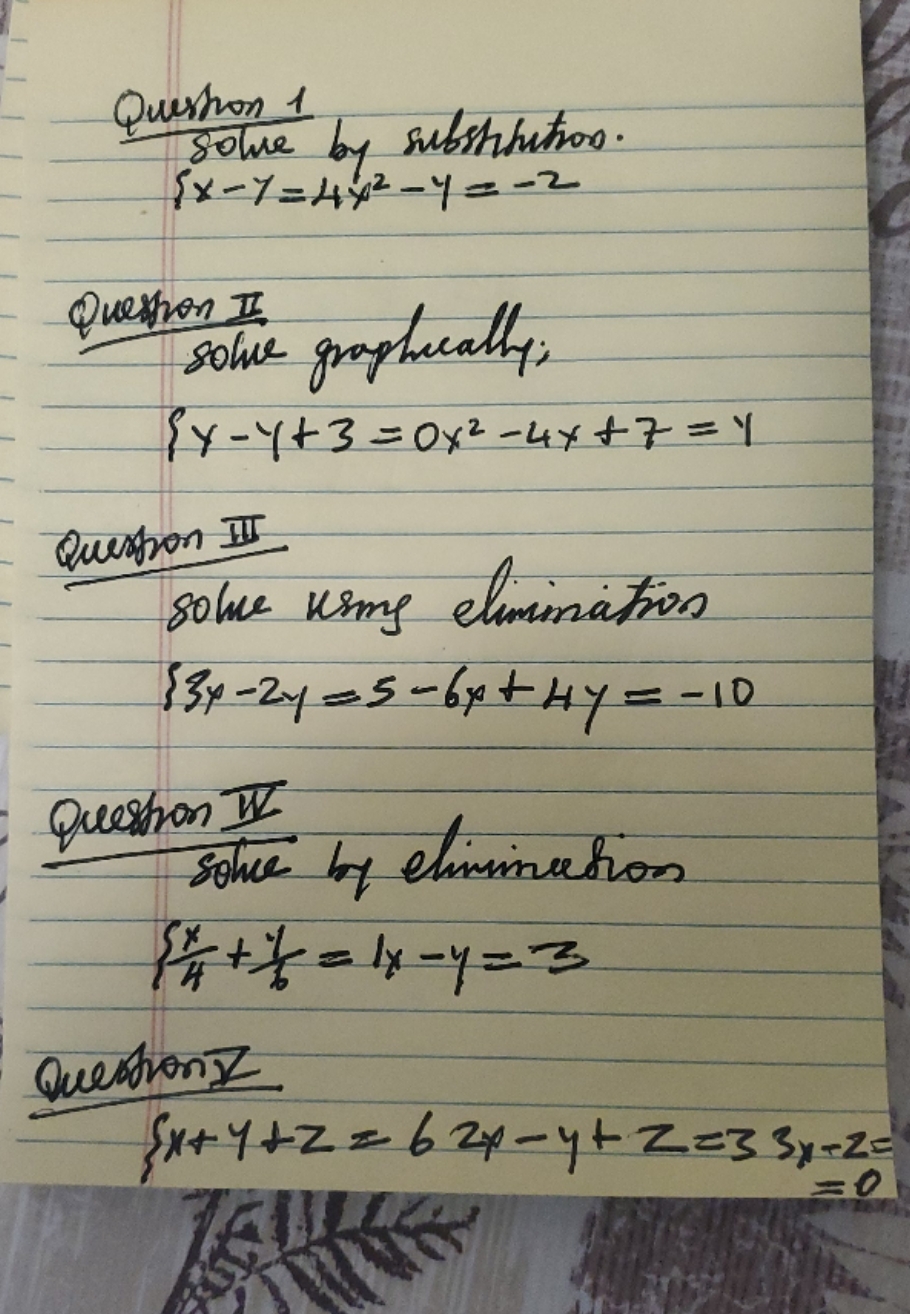 Question 1
solve by substitution.
{x-y=4x²-y=-2
Question II
solve graphically;
{x-y+3=0x²-4x+7=y
Question III
solve using elimination
{3x-2y=5-6x+4y=-10
Question IV
solve by elimination
{x/4+y/6=1x-y=3
Question V
{x+y+z=6 2x-y+z=3 3x-z=
=0